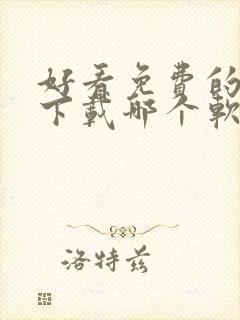 好看免费的
下载哪个软
洛特兹